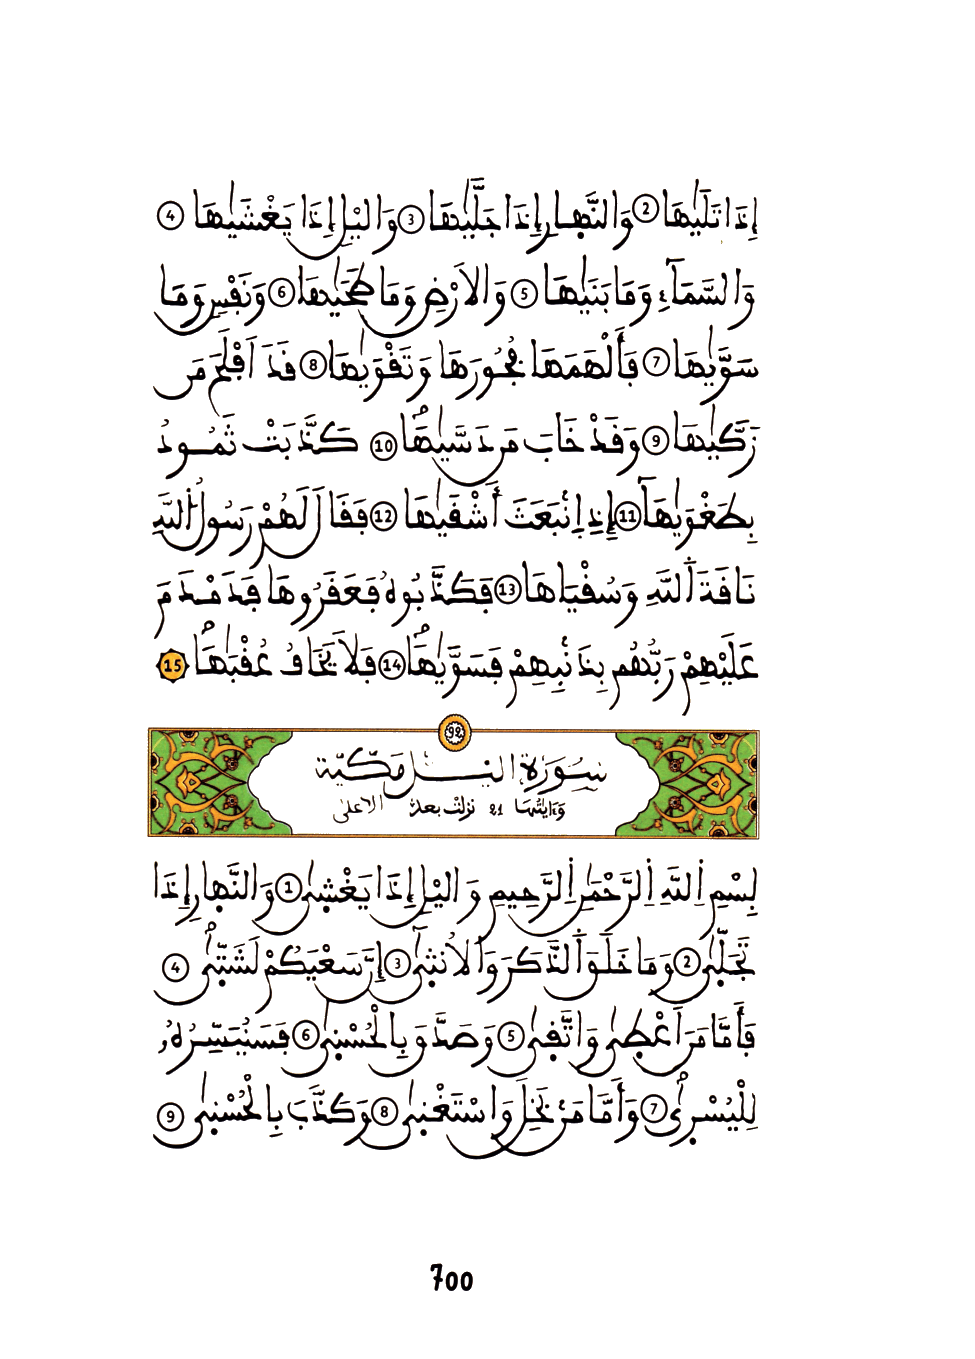 إِذَا تَلَيٰهَا 2 وَالنَّهِارِ إِذَا جَلَّيٰهَا 3 وَاليْلِ إِذَا يَغْشَيٰهَا 4
وَالسَّمَآءِ وَمَا بَنَيٰهَا 5 وَالَارْضِ وَمَا طَحَيٰهَا 6 وَنَفْسٍ وَمَا
سَوَّيٰهَا 7 فَأَلْهَمَهَا فُجُورَهَا وَتَقْوَيٰهَا 8 قَدَ اَفْلَحَ مَن
زَكَّيٰهَا 9 وَقَدْ خَابَ مَن دَسَّيٰهَا 10 كَذَّبَتْ ثَمُودُ
بِطَغْوَيٰهَآ 11 إِذِ اِنۢبَعَثَ أَشْقَيٰهَا 12 فَقَالَ لَهُمْ رَسُولُ اُللَّهِ
نَاقَةَ اَللَّهِ وَسُقْيَاهَا 13 فَكَذَّبُوهُ فَعَقَرُوهَا فَدَمْدَمَ
عَلَيْهِمْ رَبُّهُم بِذَنۢبِهِمْ فَسَوَّيٰهَا 14 فَلَا يَخَافُ عُقْبَٰهَا 15
92
سُورَةُ اليْلِ مَكِّيَّة
وَءَايَٰتُهَا 21 نزلت بعد الاعلىٰ
بِسْمِ اِللَّهِ اِلرَّحْمَٰنِ اِلرَّحِيمِ وَاليْلِ إِذَا يَغْشِىٰ 1 وَالنَّهِارِ إِذَا
تَجَلِّىٰ 2 وَمَا خَلَقَ اَلذَّكَرَ وَالُانثِىٰٓ 3 إِنَّ سَعْيَكُمْ لَشَتِّىٰ 4
فَأَمَّا مَنَ اَعْطِىٰ وَاتَّقِىٰ 5 وَصَدَّقَ بِالْحُسْنِىٰ 6 فَسَنُيَسِّرُهُۥ
لِلْيُسْرِىٰ 7 وَأَمَّا مَنۢ بَخِلَ وَاسْتَغْنِىٰ 8 وَكَذَّبَ بِالْحُسْنِىٰ 9
700